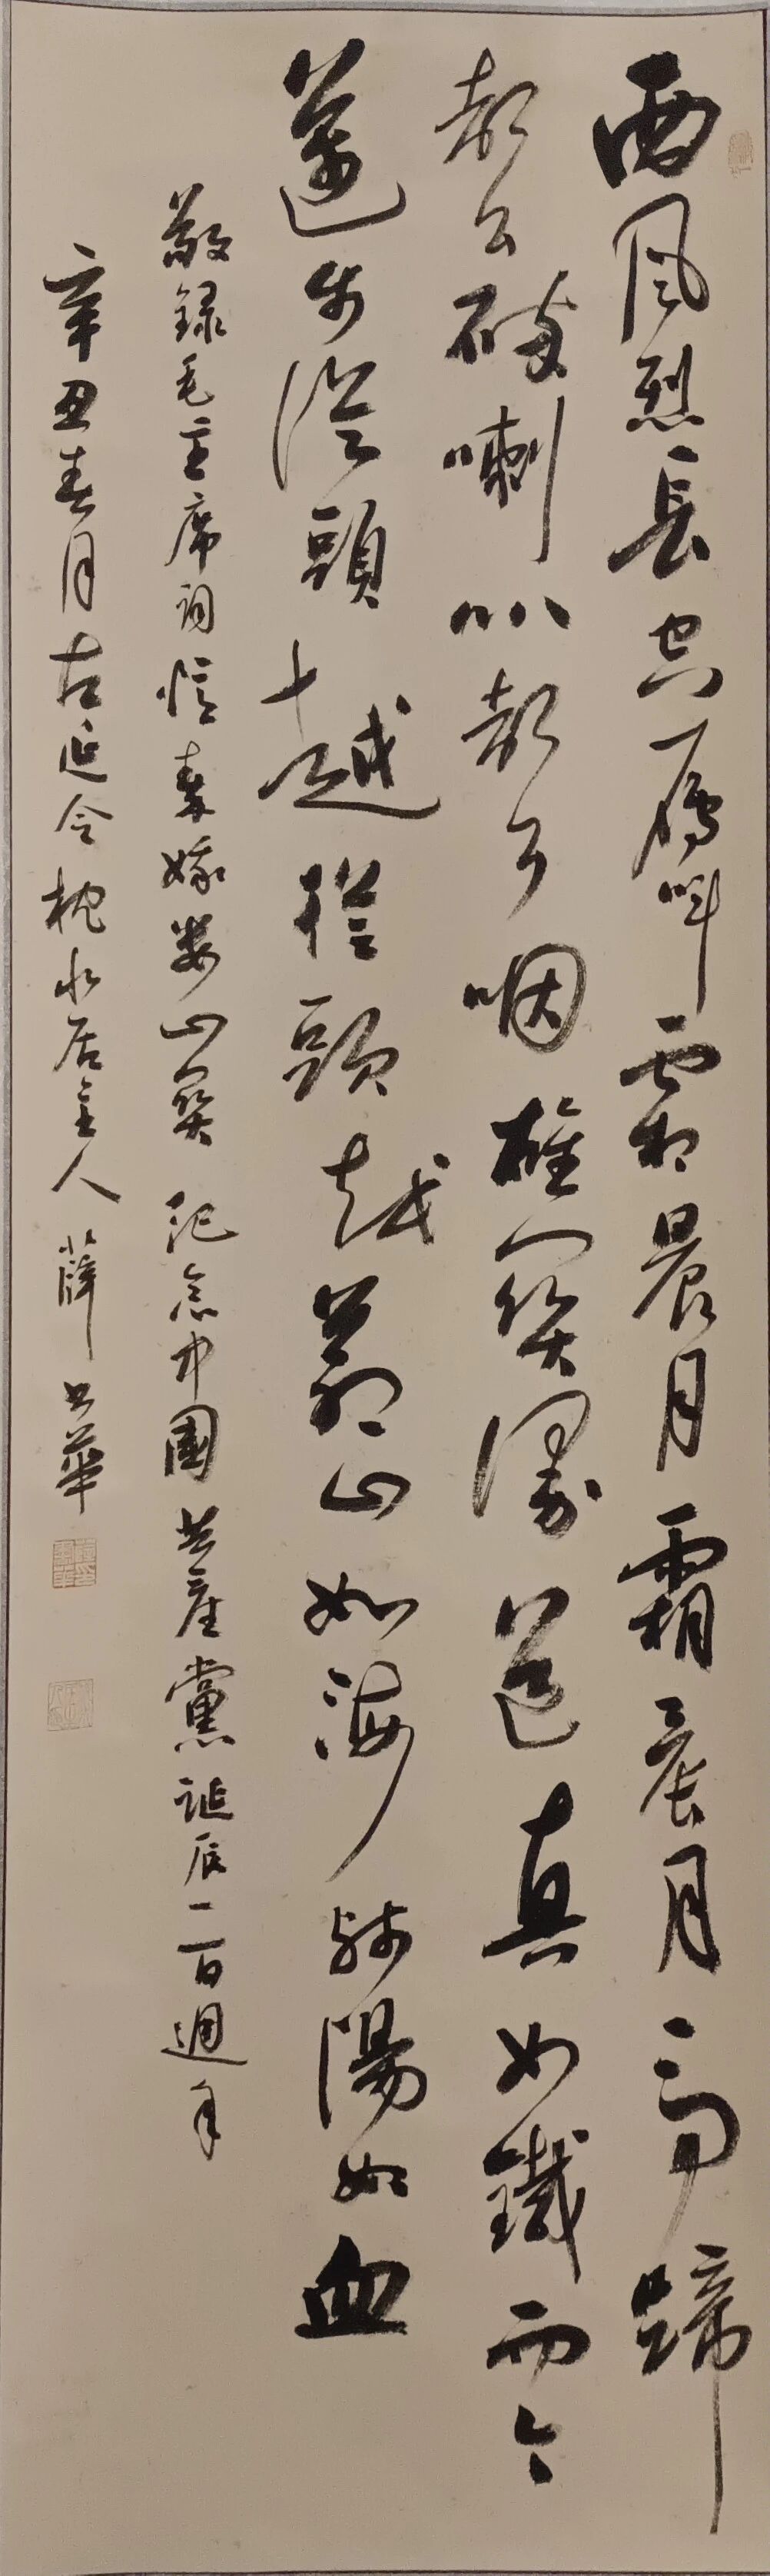 西風烈長空鴈叫霜晨月霜晨月馬蹄
聲碎喇叭聲咽雄關漫道真如鐵而今
邁步從頭越從頭越蒼山如海殘陽如血
敬錄毛主席詞憶秦娥婁山關 紀念中國共產黨誕辰一百週年
辛丑春月古延令枕水居主人薛書華